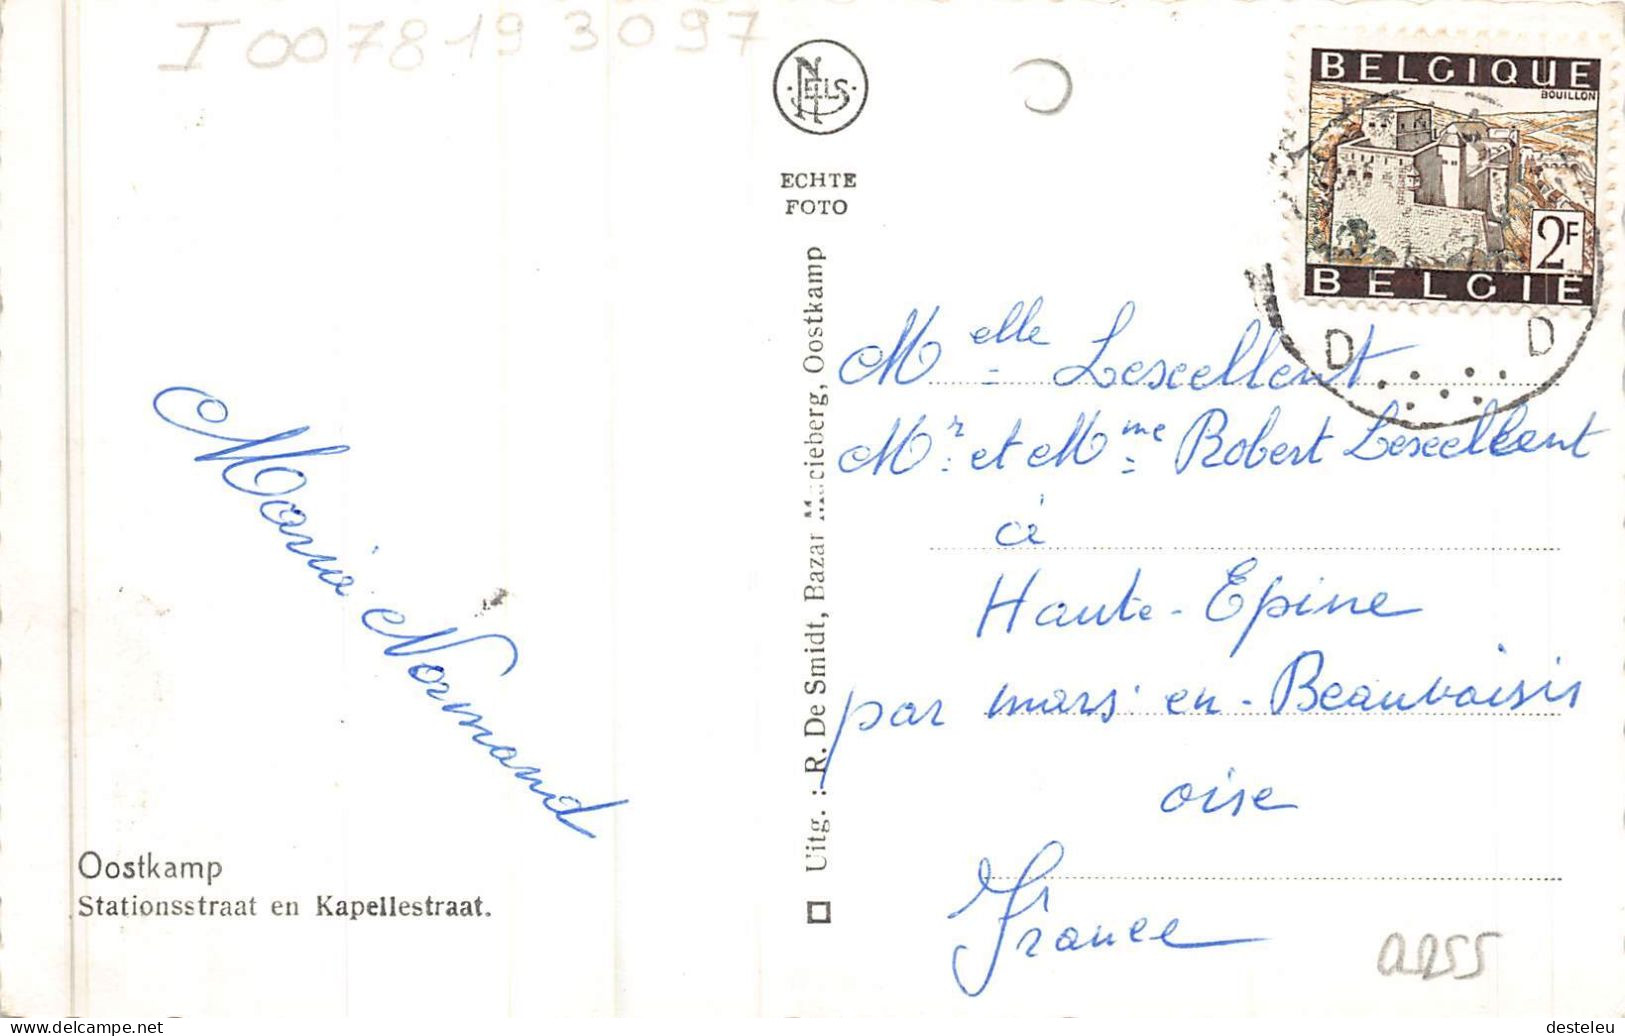 I 0078193097
NELS
ECHTE
FOTO
BELGIQUE
BOUILLON
2F
BELGIË
D D
Marie Normand
Oostkamp
Stationsstraat en Kapellestraat.
Uitg. : R. De Smidt, Bazar Macieberg, Oostkamp
Melle Lescellent
Mr et Mme Robert Lescellent
à
Haute-Epine
par mars en-Beauvaisis
oise
France
a255
www.delcampe.net
desteleu